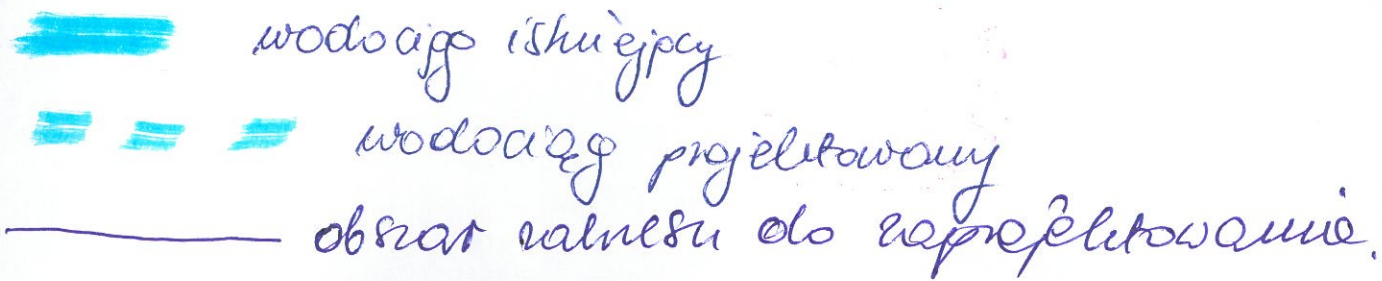 wodociąg istniejący
wodociąg projektowany
obszar zakresu do zaprojektowania.